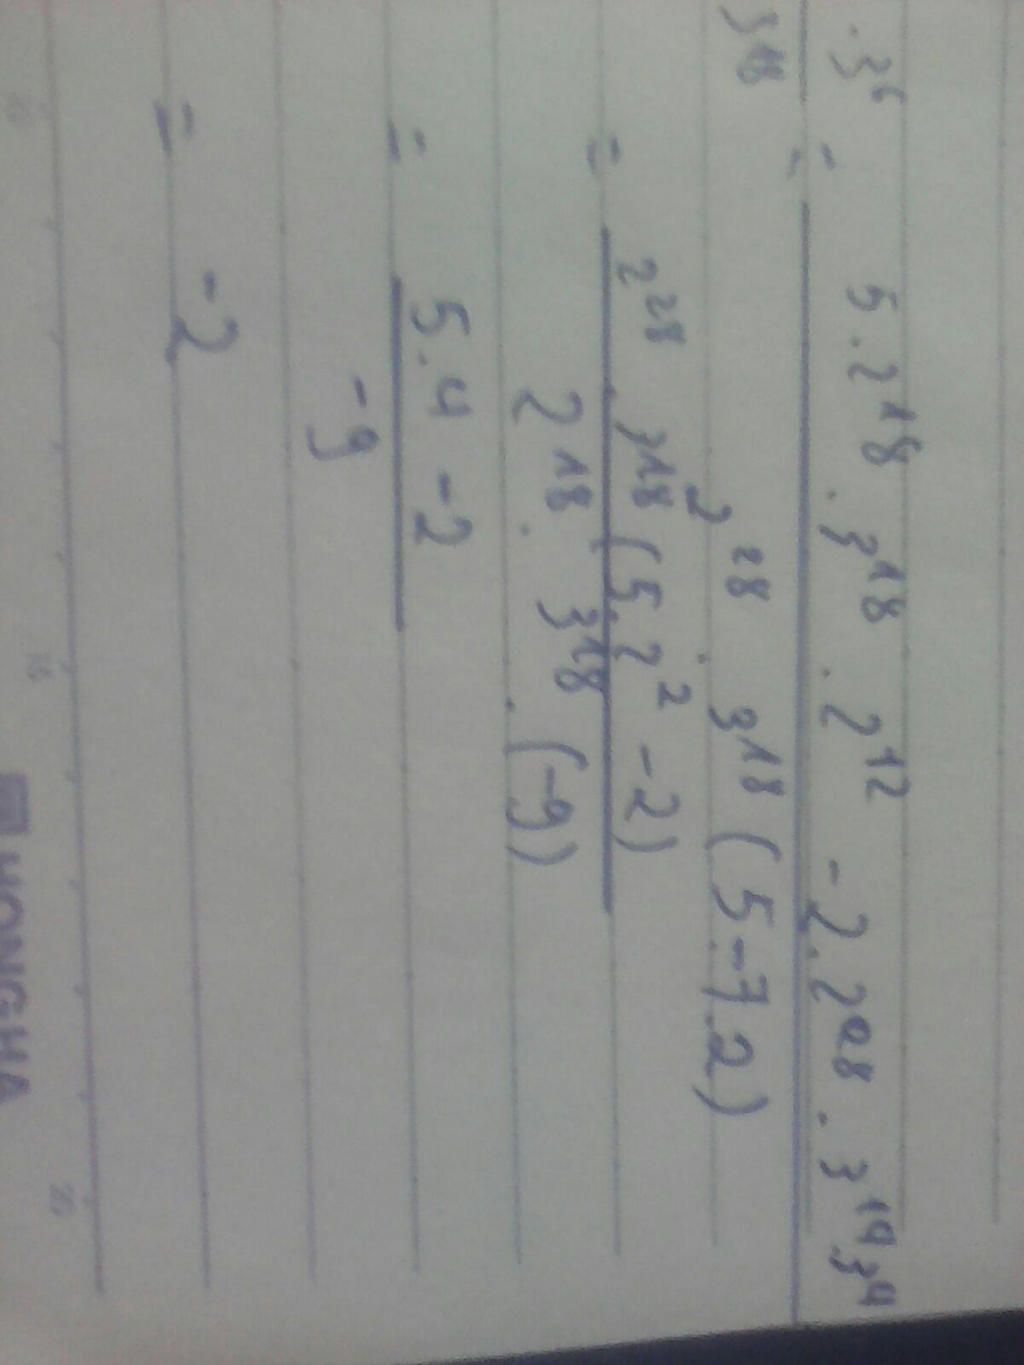 . 3⁶ = 5 . 2¹⁸ . 3¹⁸ . 2¹² - 2 . 2²⁸ . 3¹⁴ 3⁴
3¹⁸ 2²⁸ . 3¹⁸ ( 5 - 7.2 )
= 2²⁸ . 3¹⁸ ( 5.2² - 2 )
2¹⁸ . 3¹⁸ . (-9)
= 5.4 - 2
-9
= -2
HONGHA
15
20